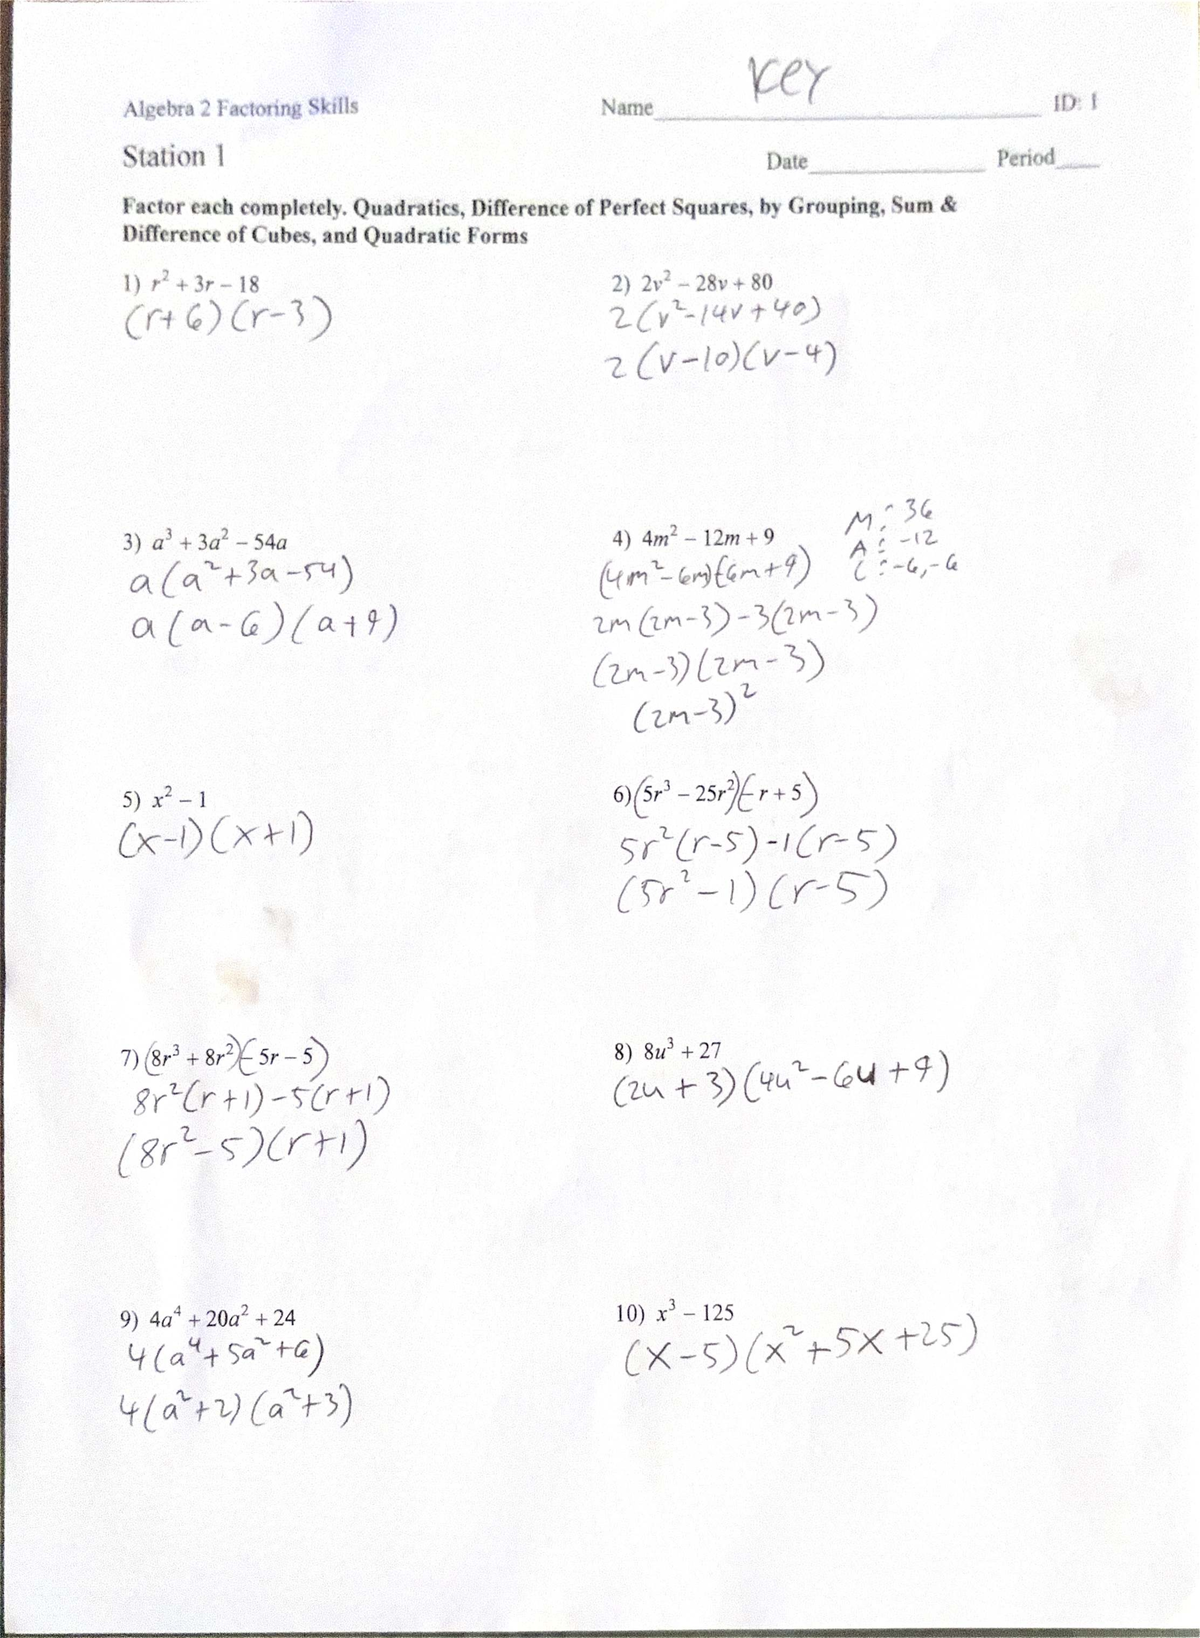 Key
Algebra 2 Factoring Skills Name ID: 1
Station 1 Date Period
Factor each completely. Quadratics, Difference of Perfect Squares, by Grouping, Sum &
Difference of Cubes, and Quadratic Forms
1) r² + 3r – 18
(r+6)(r-3)
2) 2v² – 28v + 80
2(v²-14v+40)
2(v-10)(v-4)
3) a³ + 3a² – 54a
a(a²+3a-54)
a(a-6)(a+9)
4) 4m² – 12m + 9
M: 36
A: -12
C: -6,-6
(4m²-6m)(-6m+9)
2m(2m-3)-3(2m-3)
(2m-3)(2m-3)
(2m-3)²
5) x² – 1
(x-1)(x+1)
6) (5r³ – 25r²)(– r + 5)
5r²(r-5)-1(r-5)
(5r²-1)(r-5)
7) (8r³ + 8r²)(– 5r – 5)
8r²(r+1)-5(r+1)
(8r²-5)(r+1)
8) 8u³ + 27
(2u+3)(4u²-6u+9)
9) 4a⁴ + 20a² + 24
4(a⁴+5a²+6)
4(a²+2)(a²+3)
10) x³ – 125
(x-5)(x²+5x+25)